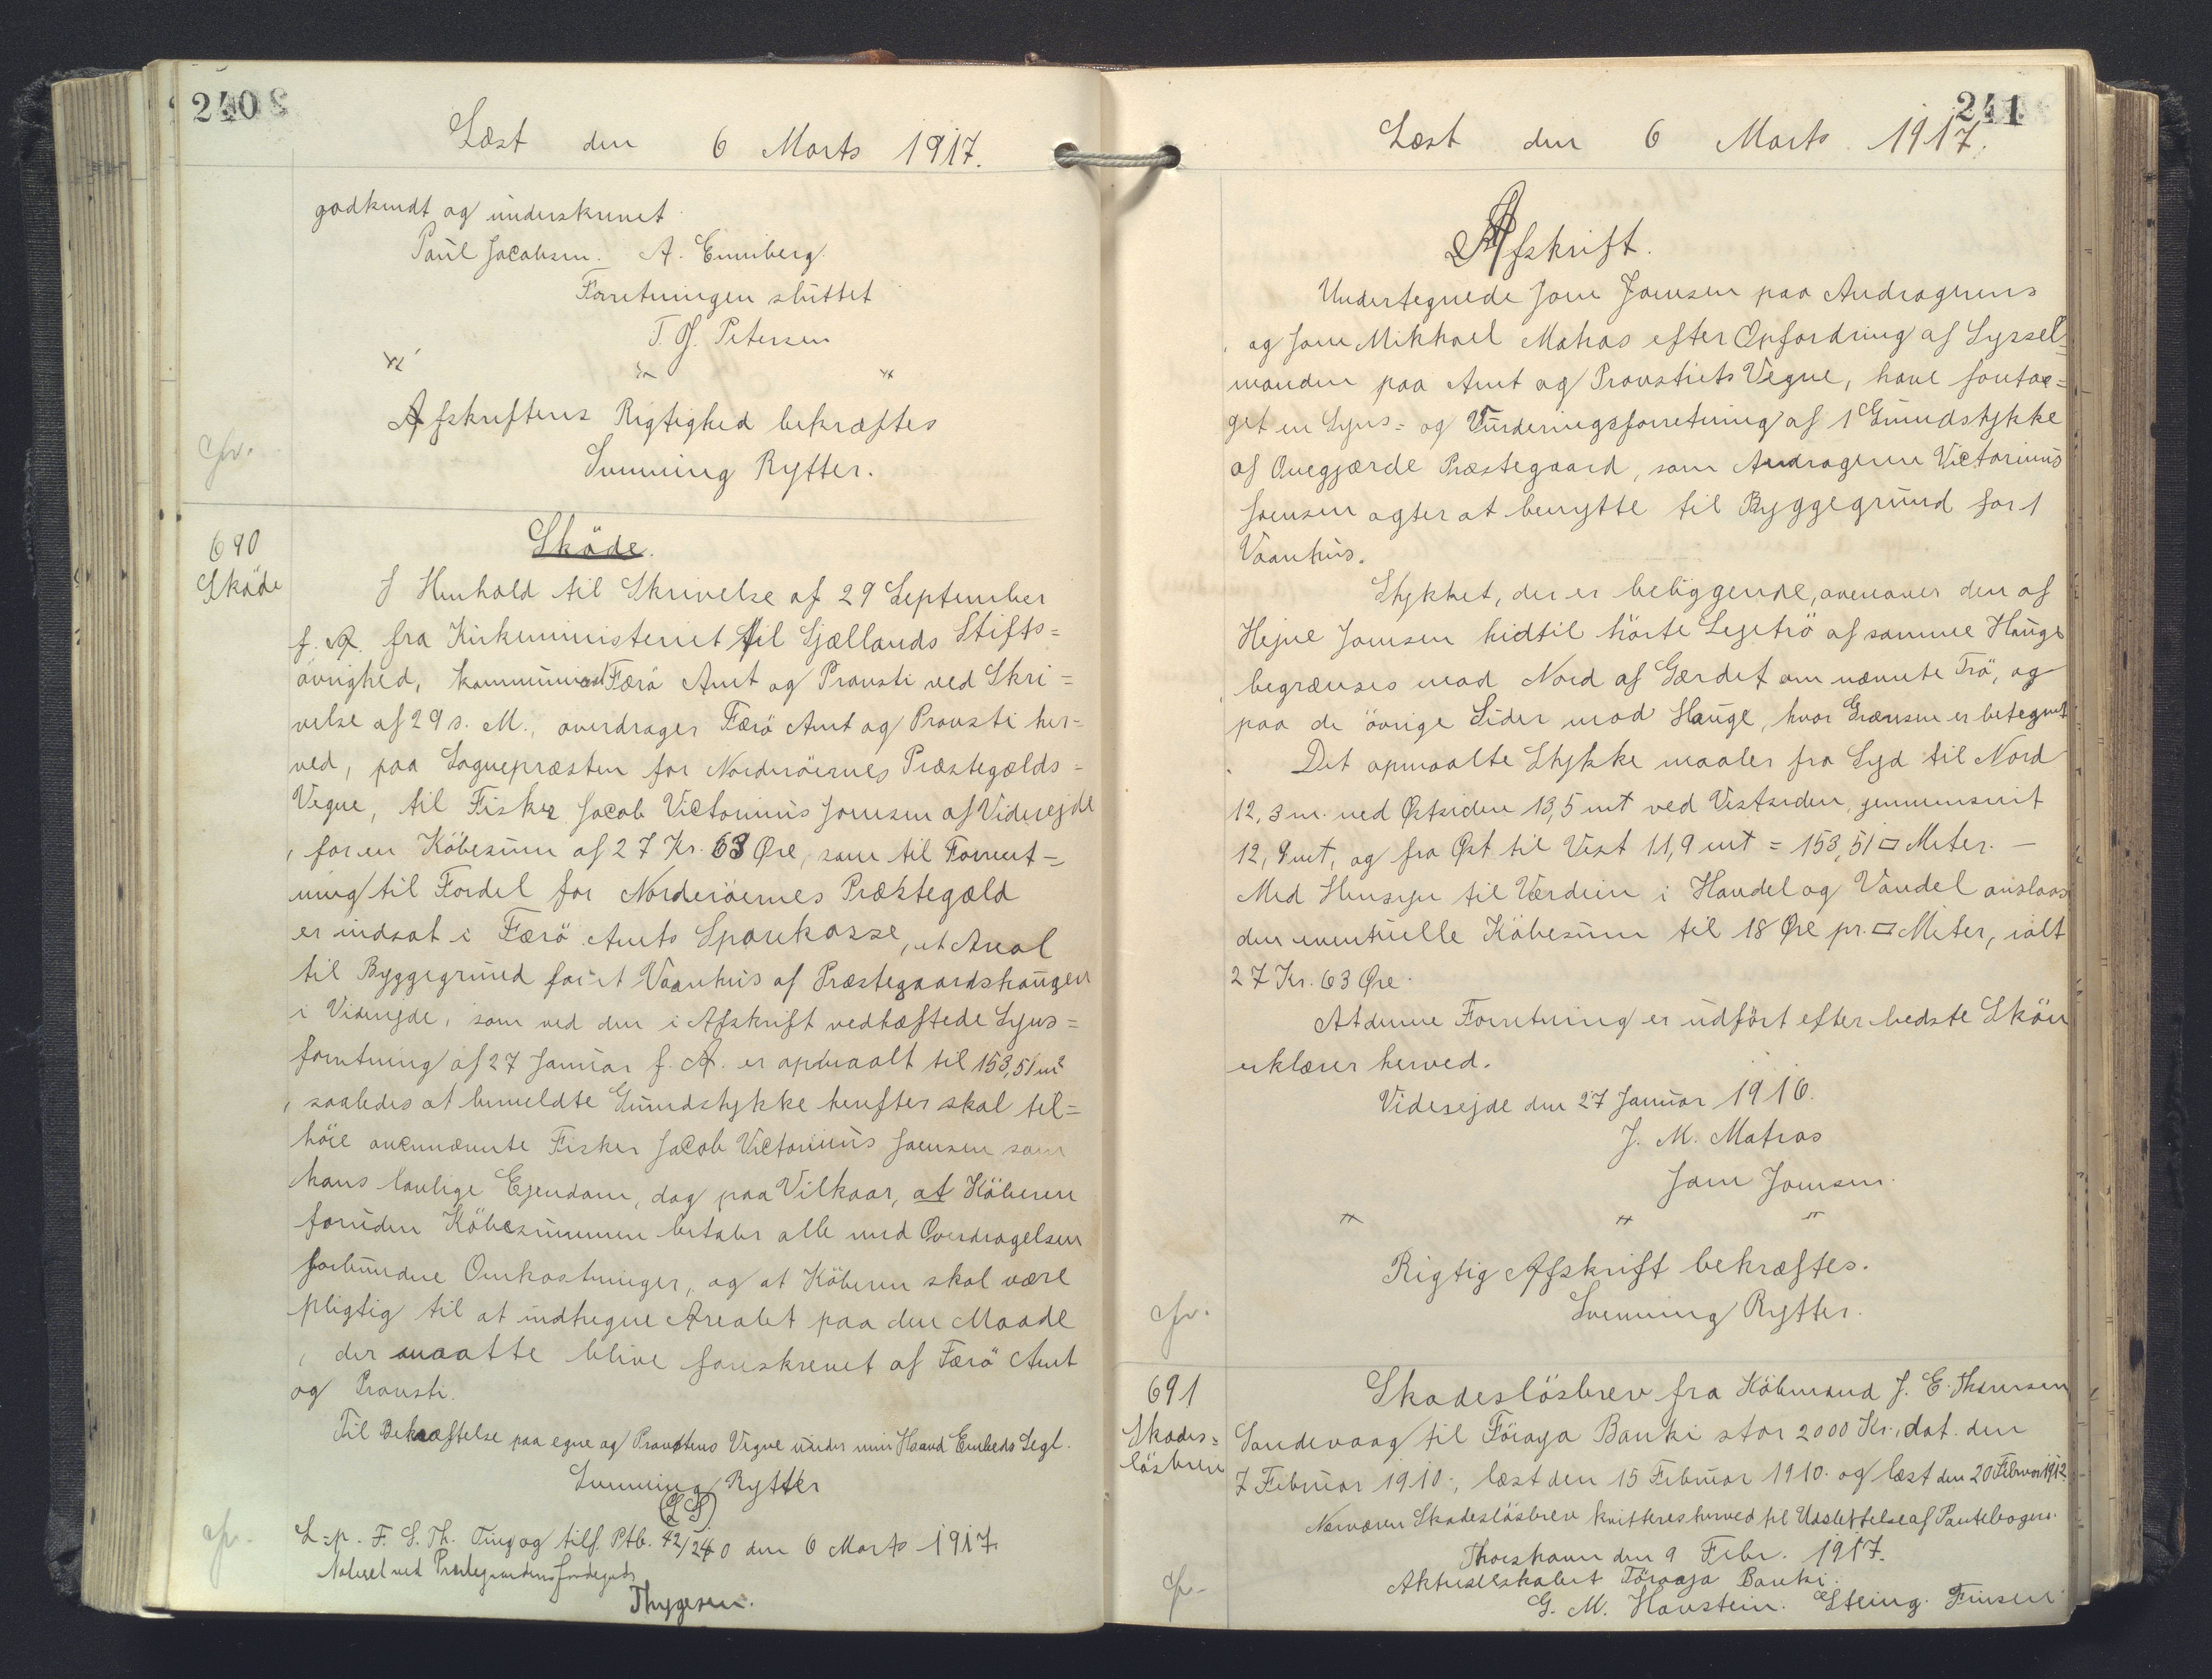 240
Læst den 6 Marts 1917.
godkendt og underskrevet
Paul Jacobsen. A. Enniberg.
Forretningen sluttet
T. Petersen
Afskriftens Rigtighed bekræftes
cfr.
Svenning Rytter.
690
Sköde
Sköde.
I Henhold til Skrivelse af 29 September
f. A. fra Kirkeministeriet til Sjællands Stifts=
övrighed, kommuniceret Færö Amt og Provsti ved Skri=
velse af 29 s. M., overdrager Færö Amt og Provsti her=
ved, paa Sognepræsten for Norderöernes Præstegælds=
Vegne, til Fisker Jacob Victorinus Joensen af Viderejde
, for en Köbesum af 27 Kr. 63 Øre, som til Forrent=
ning til Fordel for Norderöernes Præstegæld
er indsat i Færö Amts Sparekasse, et Areal
til Byggegrund for et Vaanhus af Præstegaardshaugen
i Viderejde, som ved den i Afskrift vedhæftede Syns=
forretning af 27 Januar f. A. er opmaalt til 153,51 m²
, saaledes at bemeldte Grundstykke herefter skal til=
höre ovennævnte Fisker Jacob Victorinus Joensen som
hans lovlige Ejendom, dog paa Vilkaar, at Köberen
foruden Köbesummen betaler alle med Overdragelsen
forbundne Omkostninger, og at Köberen skal være
pligtig til at indhegne Arealet paa den Maade
, der maatte blive foreskrevet af Færö Amt
og Provsti.
Til Bekræftelse paa egne og Provstens Vegne under min Haand Embeds Segl.
Svenning Rytter
(L S)
cfr.
L=p. F. S. Th. Ting og tilf. Ptb. 42/240 den 6 Marts 1917.
Noteret ved Præstegaardens Jordegods
Thygesen.
241
Læst den 6 Marts 1917.
Afskrift.
Undertegnede Joen Joensen paa Andragerens
og Joen Mikkael Matras efter Opfordring af Syssel=
manden paa Amt og Provstiets Vegne, have foretae=
get en Syns= og Vurderingsforretning af 1 Grundstykke
af Onegjærde Præstegaard, som Andrageren Victorinus
Joensen agter at benytte til Byggegrund for 1
Vaanhus.
Stykket, der er beliggende, ovenover den af
Hejne Joensen hidtil hörte Legetrö af samme Hauge
begrænses mod Nord af Gærdet om nævnte Trö, og
paa de övrige Sider mod Hauge, hvor Grænsen er betegnet
Det opmaalte Stykke maaler fra Syd til Nord
12,3 m. ved Østsiden 13,5 mt ved Vestsiden, gennemsnit
12,9 mt, og fra Øst til Vest 11,9 mt = 153,51 □ Meter. —
Med Hensyn til Værdien i Handel og Vandel anslaas
den eventuelle Köbesum til 18 Øre pr. □ Meter, ialt
27 Kr. 63 Øre.
At denne Forretning er udfört efter bedste Skön
erklærer herved.
Viderejde den 27 Januar 1916.
J. M. Matras
Joen Joensen.
Rigtig Afskrift bekræftes.
cfr.
Svenning Rytter.
691
Skades=
lösbrev
Skadeslösbrev fra Köbmand J. E. Thomsen
Sandevaag til Föroya Banki stor 2000 Kr., dat. den
7 Februar 1910., læst den 15 Februar 1910. og læst den 20 Februar 1912
Nærværen Skadeslösbrev kvitteres herved til Udslettelse af Pantebogen.
Thorshavn den 9 Febr. 1917.
Aktieselskabet Föroya Banki.
G. M. Havstein. Steing. Finsen